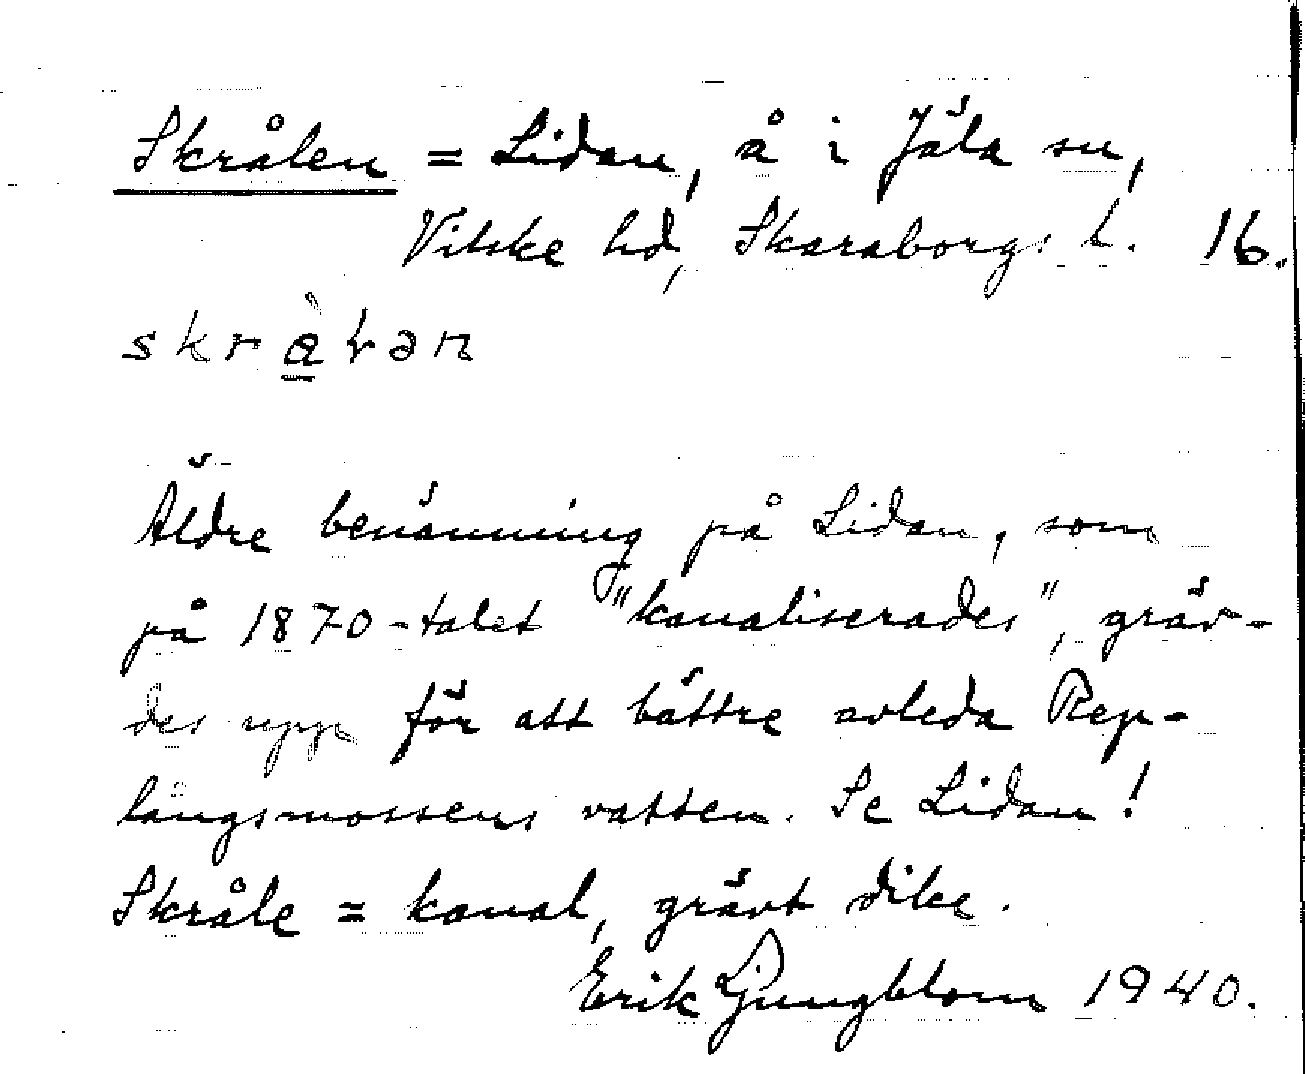 Skrålen = Lidan, å i Jäla sn,
Vilske hd, Skaraborgs l. 16.
Äldre benämning på Lidan, som
på 1870-talet "kanaliserades", gräv-
des upp för att bättre avleda Rep-
längsmossens vatten. Se Lidan!
Skråle = kanal, grävt dike.
Erik Ljungblom 1940.